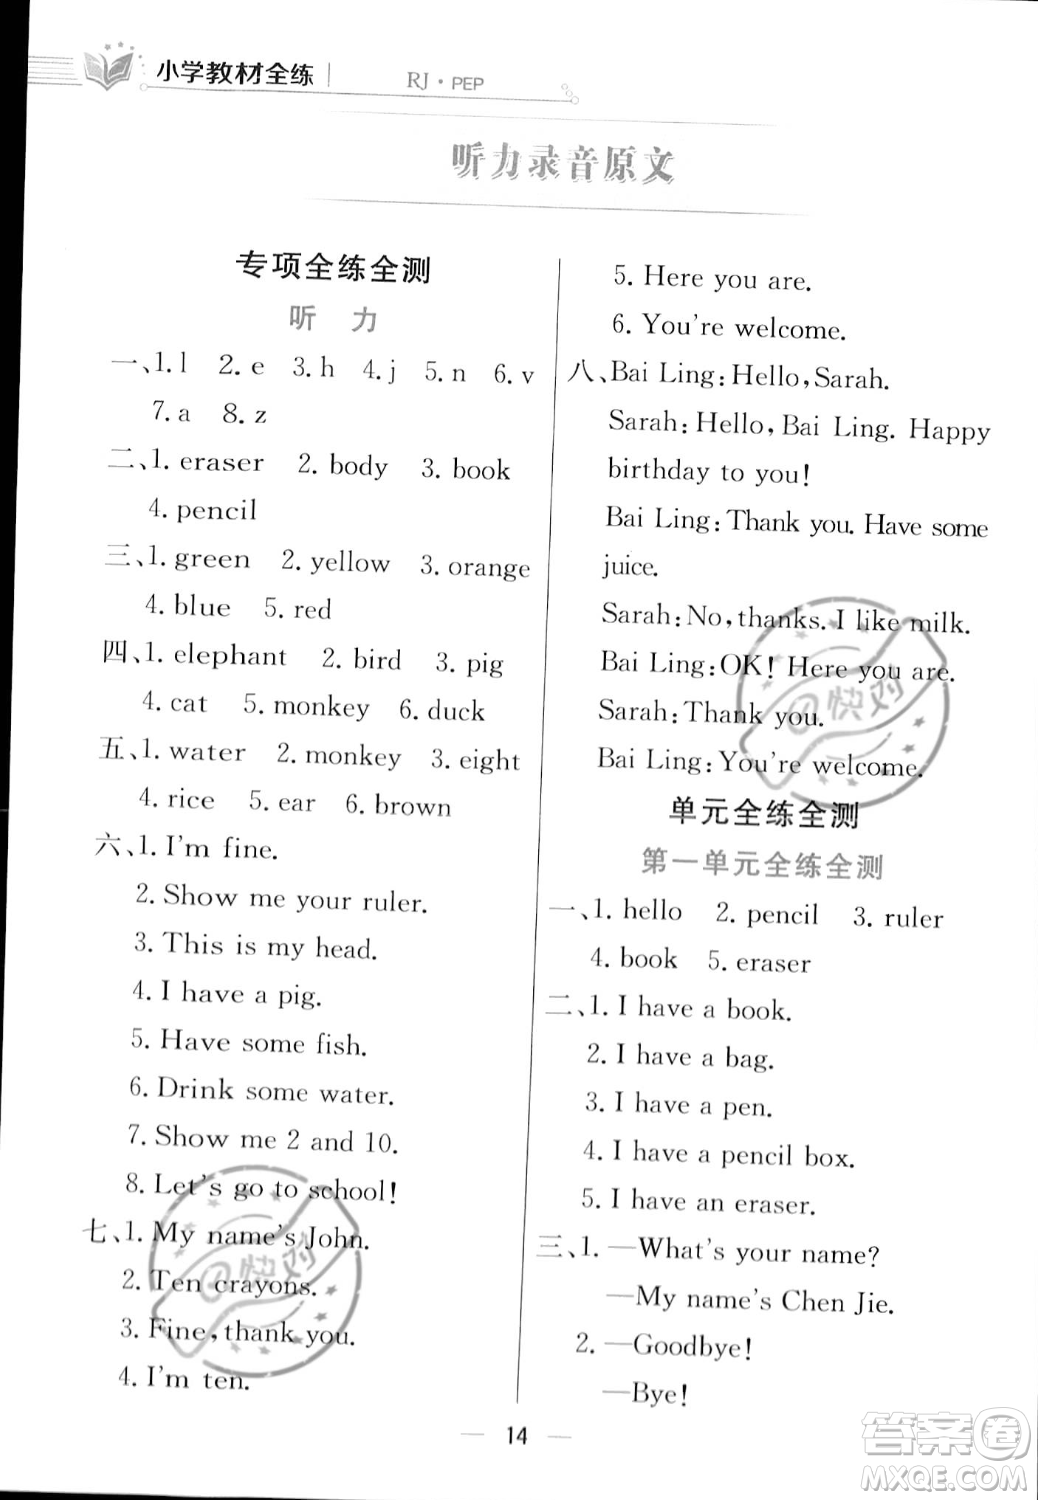 小学教材全练
RJ·PEP
听力录音原文
专项全练全测
听 力
一、1. l 2. e 3. h 4. j 5. n 6. v
7. a 8. z
二、1. eraser 2. body 3. book
4. pencil
三、1. green 2. yellow 3. orange
4. blue 5. red
四、1. elephant 2. bird 3. pig
4. cat 5. monkey 6. duck
五、1. water 2. monkey 3. eight
4. rice 5. ear 6. brown
六、1. I'm fine.
2. Show me your ruler.
3. This is my head.
4. I have a pig.
5. Have some fish.
6. Drink some water.
7. Show me 2 and 10.
8. Let's go to school!
七、1. My name's John.
2. Ten crayons.
3. Fine, thank you.
4. I'm ten.
5. Here you are.
6. You're welcome.
八、Bai Ling: Hello, Sarah.
Sarah: Hello, Bai Ling. Happy
birthday to you!
Bai Ling: Thank you. Have some
juice.
Sarah: No, thanks. I like milk.
Bai Ling: OK! Here you are.
Sarah: Thank you.
Bai Ling: You're welcome.
单元全练全测
第一单元全练全测
一、1. hello 2. pencil 3. ruler
4. book 5. eraser
二、1. I have a book.
2. I have a bag.
3. I have a pen.
4. I have a pencil box.
5. I have an eraser.
三、1. —What's your name?
—My name's Chen Jie.
2. —Goodbye!
—Bye!
14
@快对
@快对
答案卷
MXQE.COM